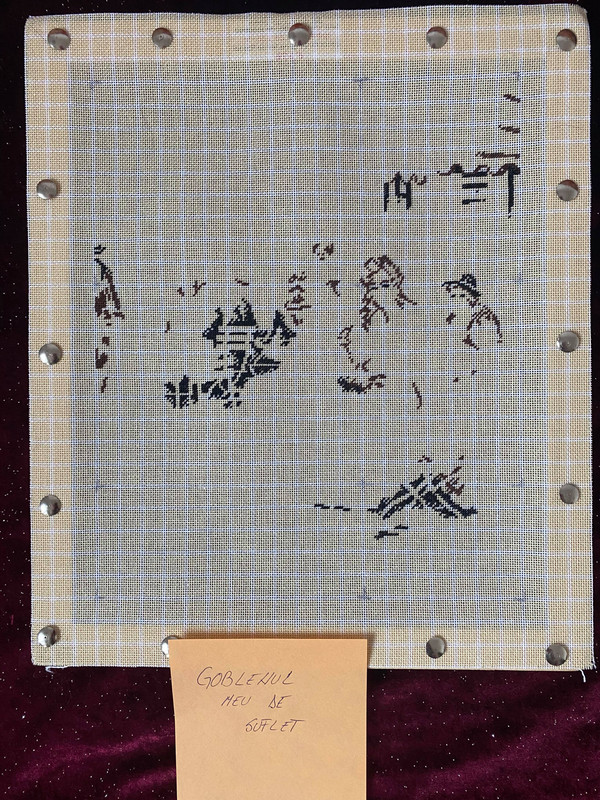 GOBLENUL
MEU DE
SUFLET